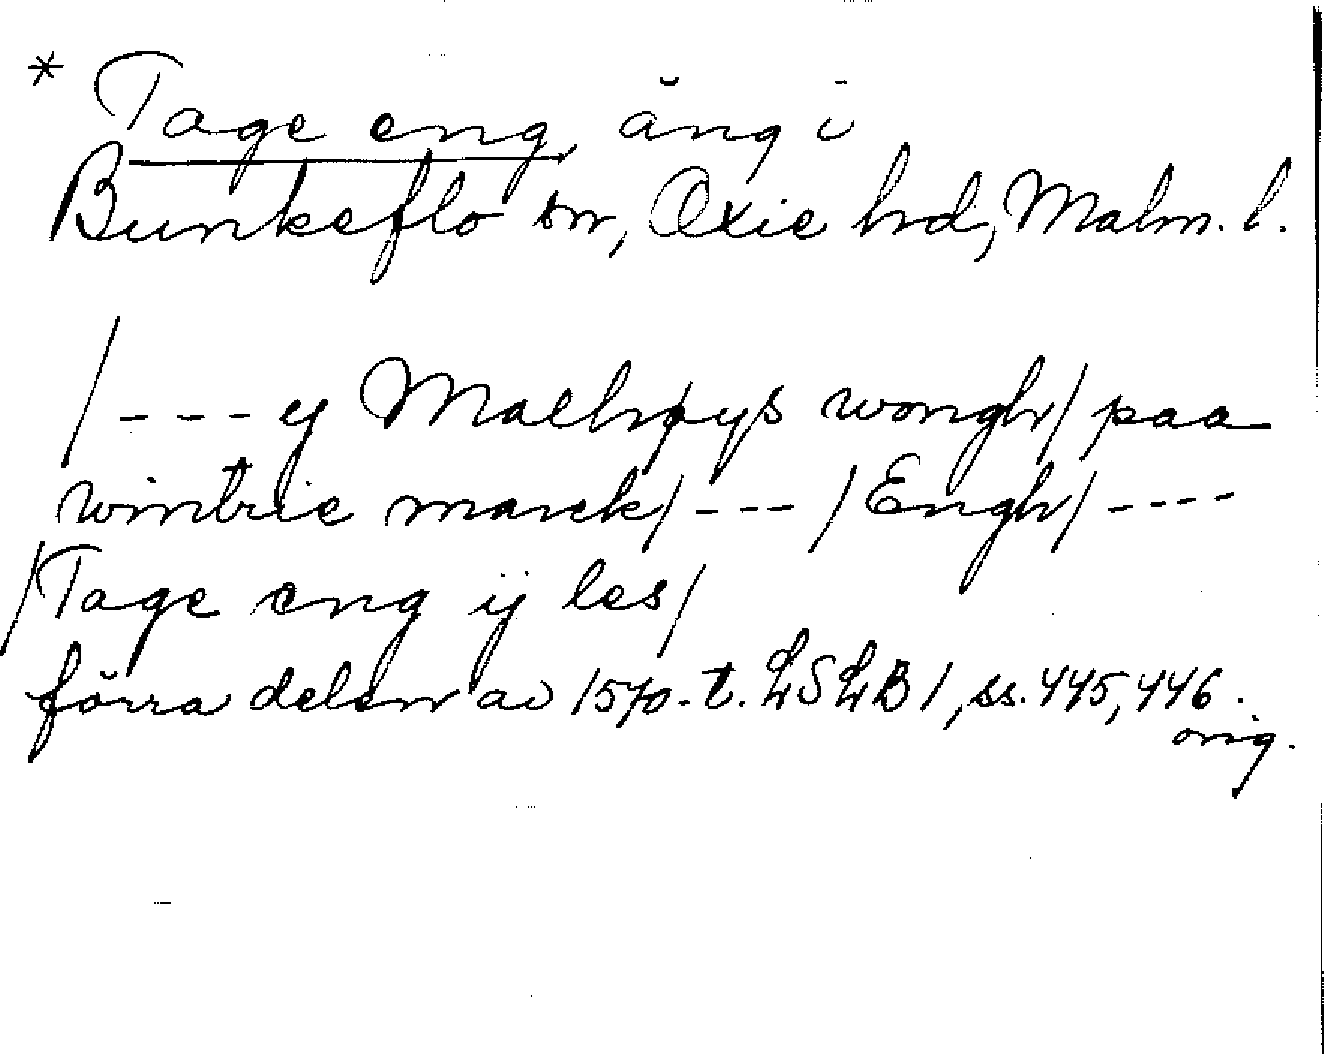 * Tage eng, äng i
Bunkeflo sn, Oxie hrd, Malm. l.
/--- y Maelhøys wongh/ paa
wintrie marck/ --- /Engh/ ----
/Tage eng ij les/
förra delen av 1570-t. LSLB 1, ss. 445, 446.
orig.